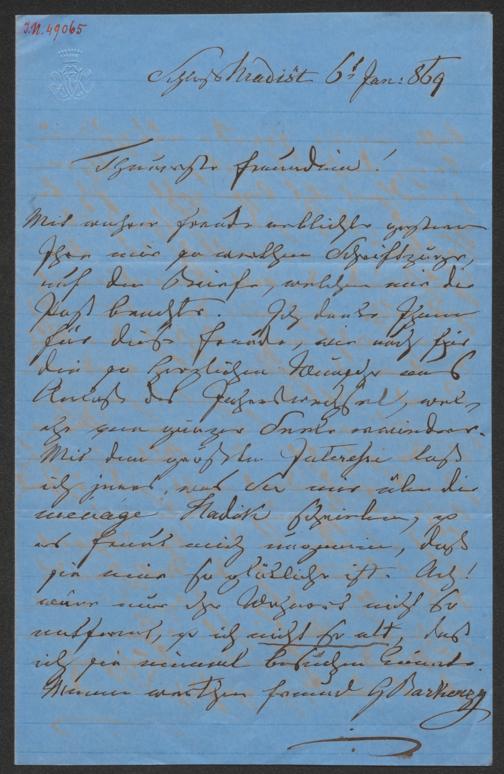 J.N. 49065
Schloß Hradišt 6t Jan: 869
Theuerste Freundin!
Mit wahrer Freude erblickte gestern
Ihre mir so werthen Schriftzüge,
auf dem Briefe, welchen mir die
Post brachte. Ich danke Ihnen
für diese Freude, wie auch für
die so herzlichen Wünsche aus
Anlaß des Jahreswechsel, wel-
che von ganzer Seele erwiedere.
Mit dem größten Interesse laß
ich jenes, was Sie mir über die
menage Hadik schrieben, es
es freut mich ungemein, daß
sie nun so glücklich ist. Ach!
wäre nur ihr Wohnort nicht so
entfernt, u ich nicht so alt, daß
ich sie einmal besuchen könnte.
Meinen werthen Freund G Barkoczy